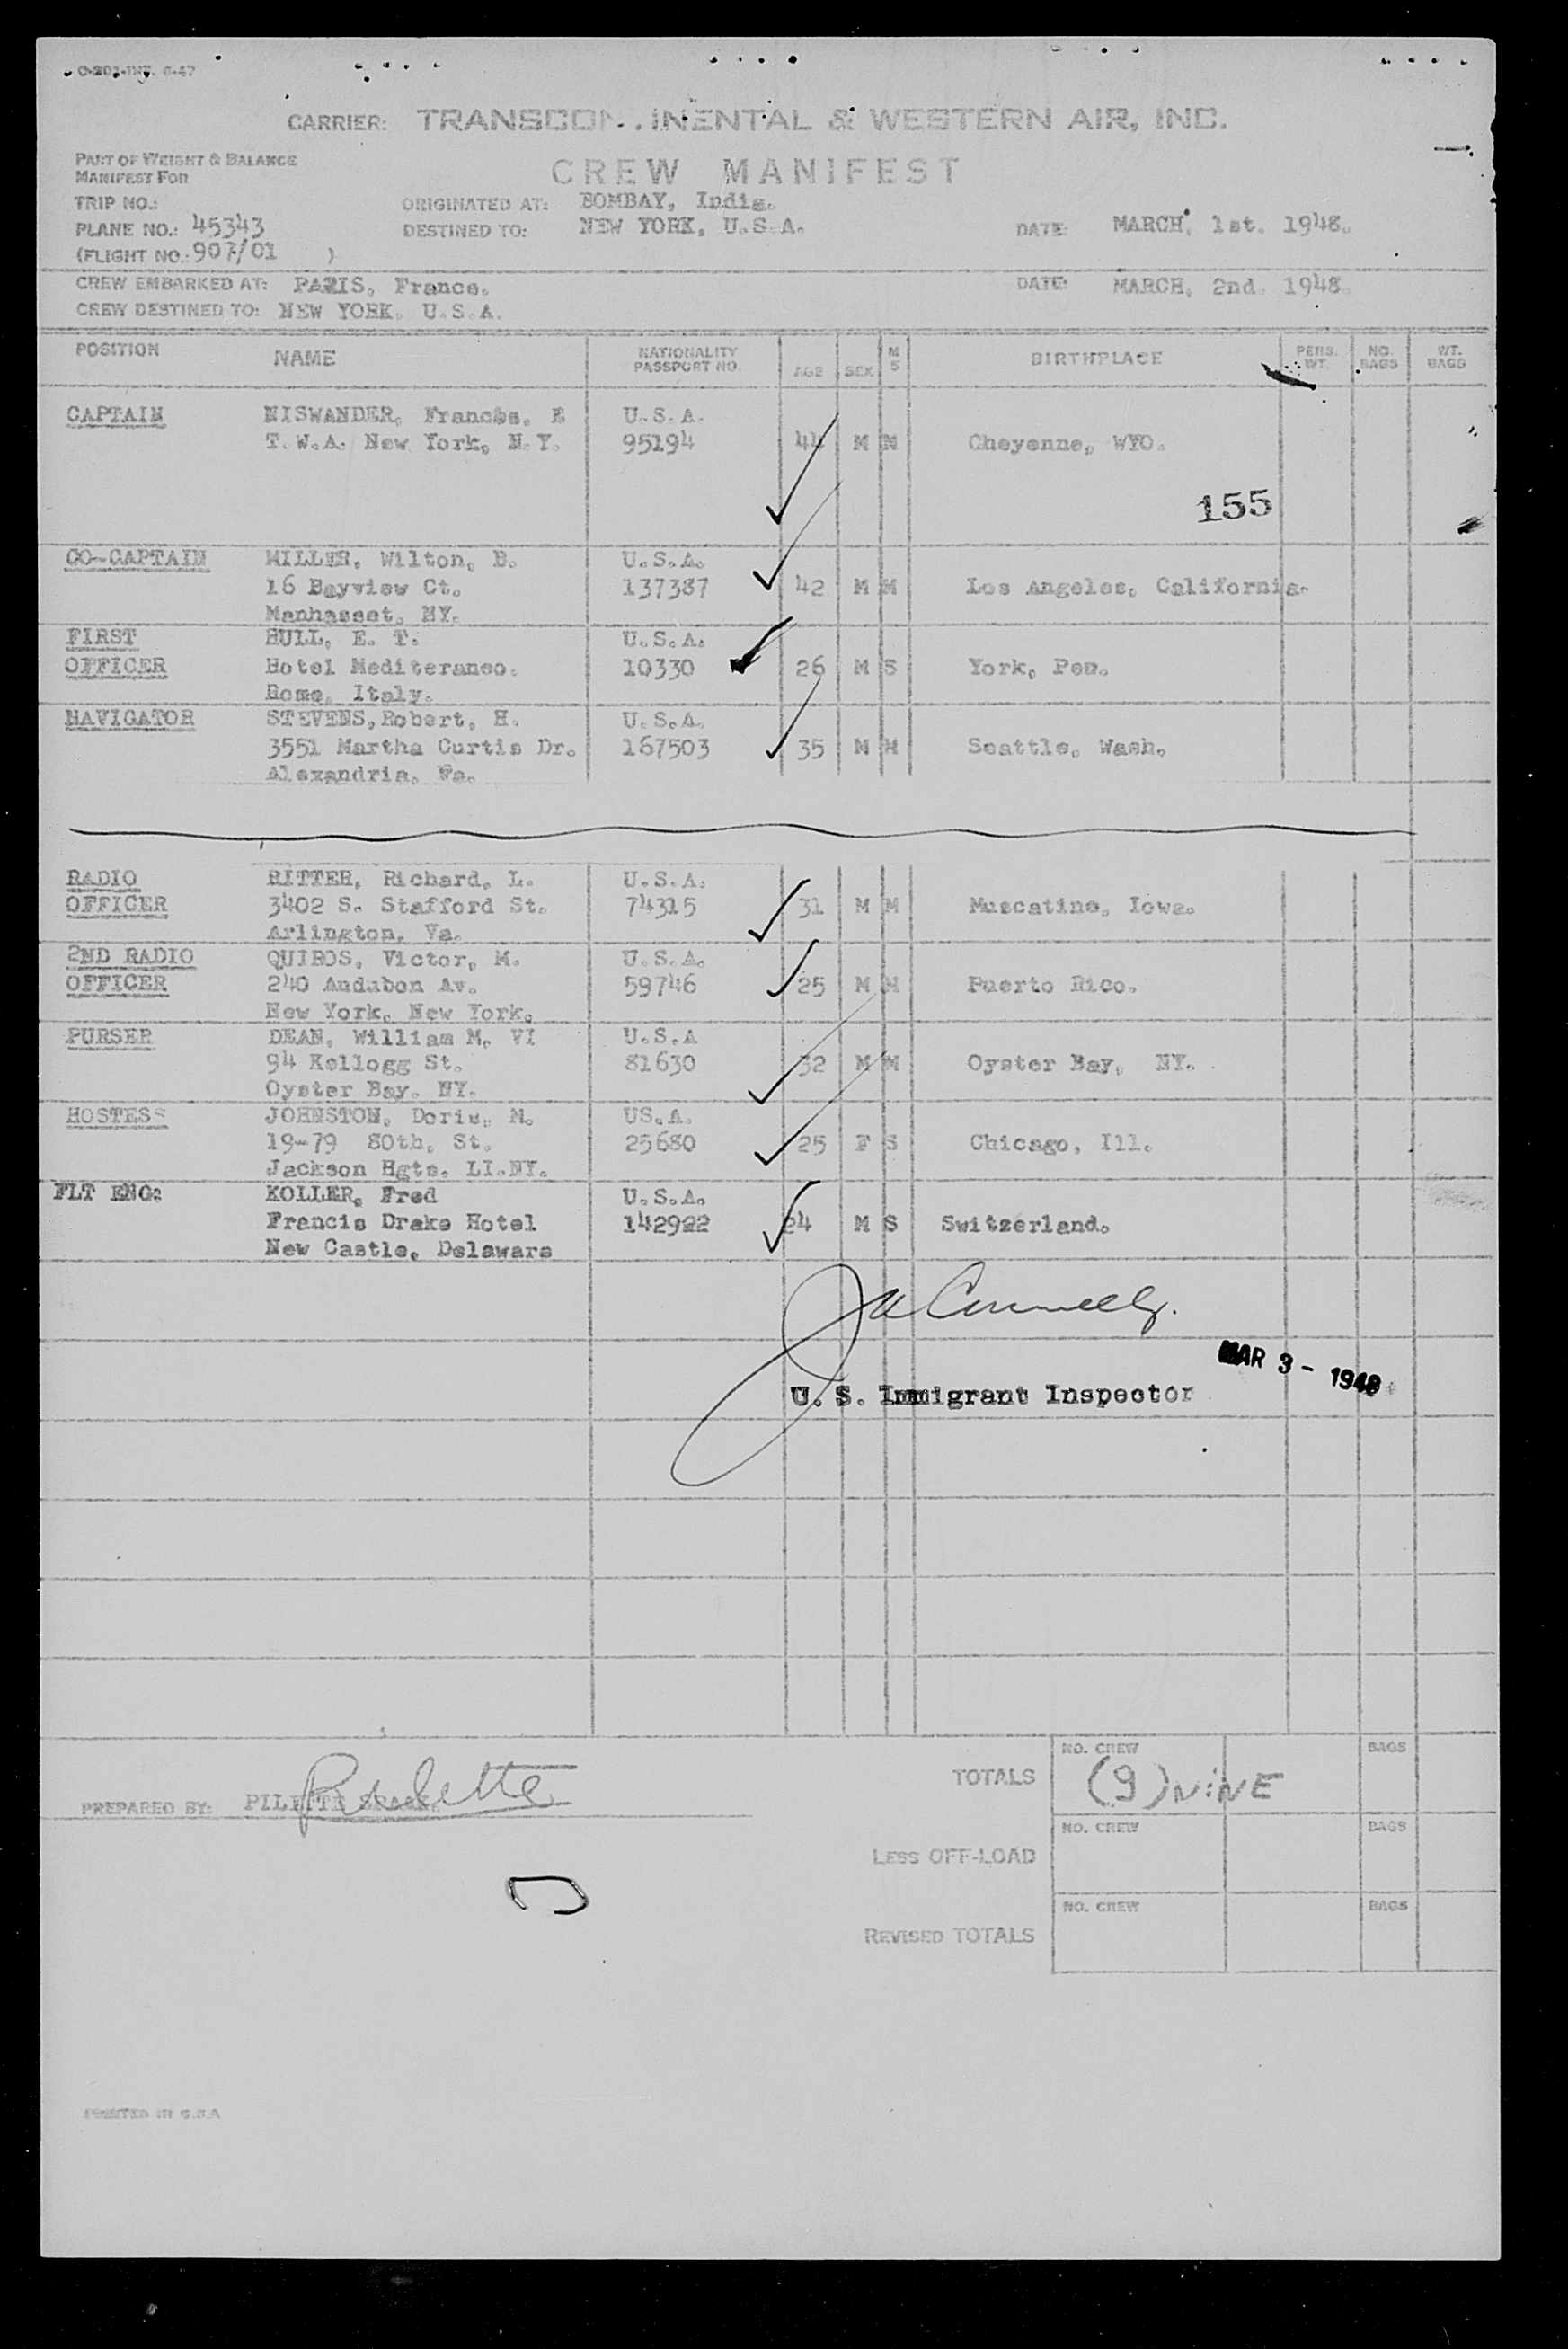 C-201-INT. 6-47
CARRIER: TRANSCON.INENTAL & WESTERN AIR, INC.
PART OF WEIGHT & BALANCE
MANIFEST FOR
CREW MANIFEST
TRIP NO.: ORIGINATED AT: BOMBAY, India.
PLANE NO.: 45343 DESTINED TO: NEW YORK, U.S.A. DATE: MARCH, 1st. 1948.
(FLIGHT NO.: 907/01 )
CREW EMBARKED AT: PARIS, France. DATE: MARCH, 2nd. 1948.
CREW DESTINED TO: NEW YORK. U.S.A.
POSITION NAME NATIONALITY PASSPORT NO. AGE SEX M S BIRTHPLACE PERS. WT. NO. BAGS WT. BAGS
CAPTAIN NISWANDER, Frances. E U.S.A.
T.W.A. New York, N.Y. 95194 44 M M Cheyenne, WYO.
155
CO-CAPTAIN MILLER, Wilton, B. U.S.A.
16 Bayview Ct. 137387 42 M M Los Angeles, California.
Manhasset, NY.
FIRST HULL, E. T. U.S.A.
OFFICER Hotel Mediteraneo. 10330 26 M S York, Pen.
Rome, Italy.
NAVIGATOR STEVENS, Robert, H. U.S.A.
3551 Martha Curtis Dr. 167503 35 M M Seattle, Wash.
Alexandria, Va.
RADIO RITTER, Richard, L. U.S.A.
OFFICER 3402 S. Stafford St. 74315 31 M M Muscatine, Iowa.
Arlington, Va.
2ND RADIO QUIROS, Victor, M. U.S.A.
OFFICER 240 Audubon Av. 59746 25 M M Puerto Rico.
New York, New York.
PURSER DEAN, William M. VI U.S.A
94 Kellogg St. 81630 32 M M Oyster Bay, NY.
Oyster Bay. NY.
HOSTESS JOHNSTON, Doris, M. US.A.
19-79 80th. St. 25680 25 F S Chicago, Ill.
Jackson Hgts. LI.NY.
FLT ENG: KOLLER, Fred U.S.A.
Francis Drake Hotel 142922 24 M S Switzerland.
New Castle, Delaware
MAR 3 - 1948
U. S. Immigrant Inspector
TOTALS NO. CREW (9) NINE BAGS
PREPARED BY:
LESS OFF-LOAD NO. CREW BAGS
REVISED TOTALS NO. CREW BAGS
PRINTED IN U.S.A